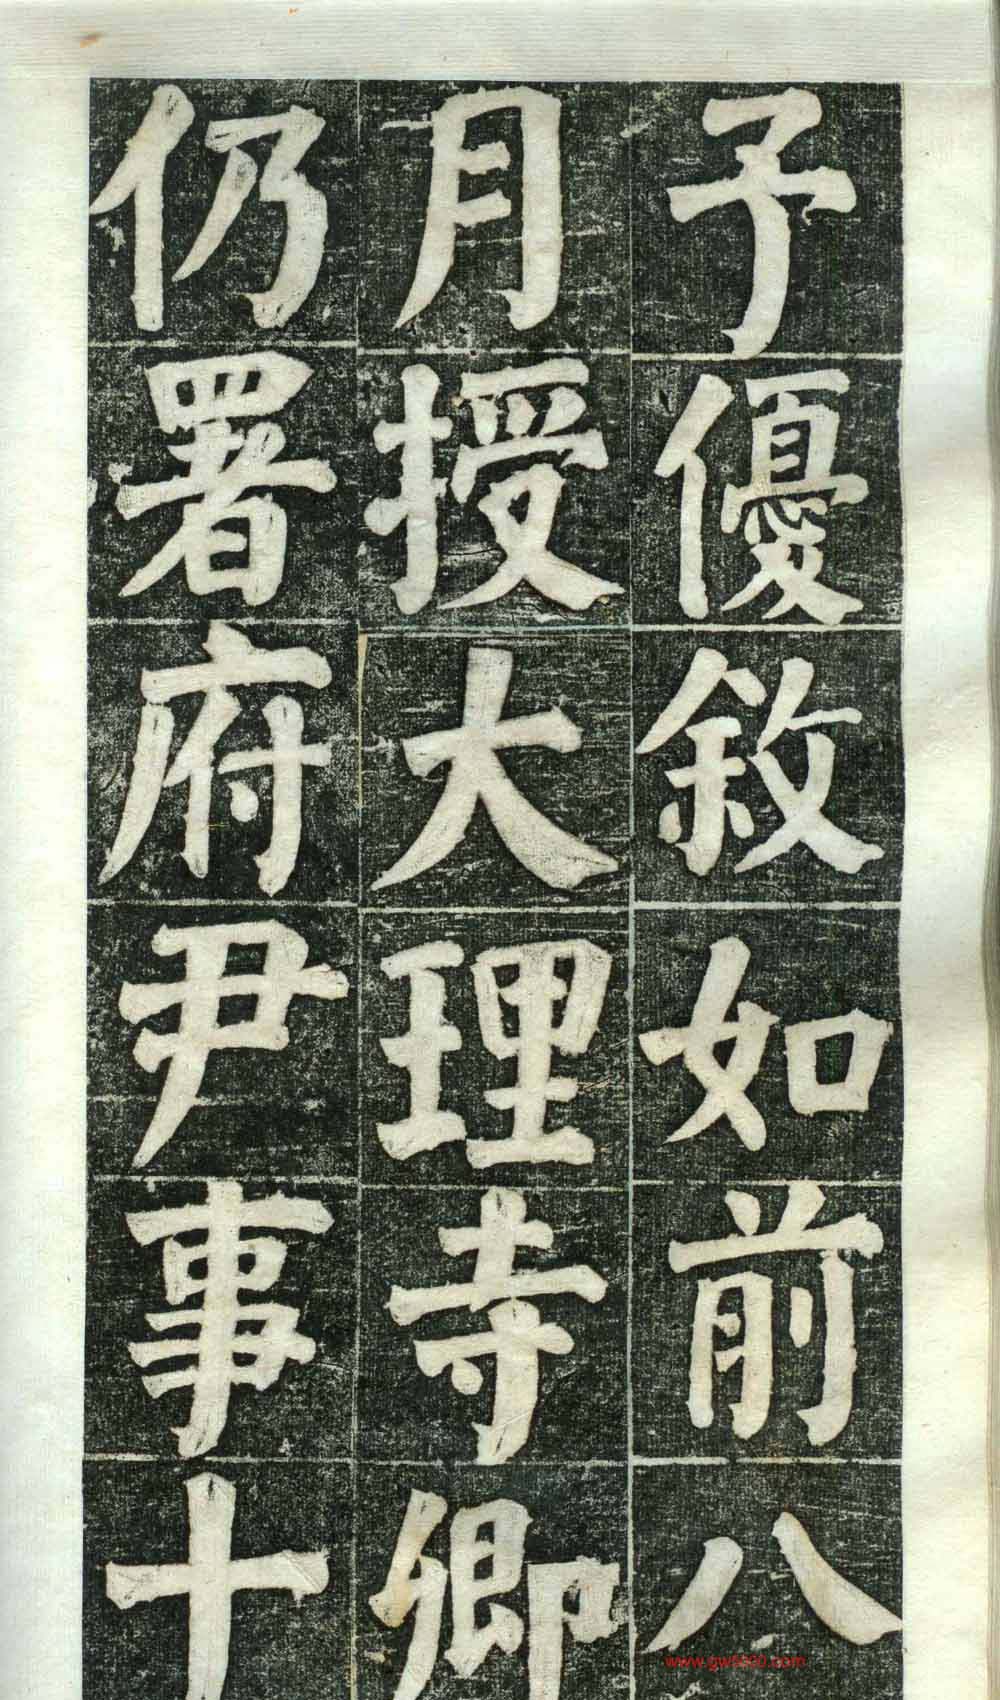 予優敘如前八
月授大理寺卿
仍署府尹事十
www.gw5000.com